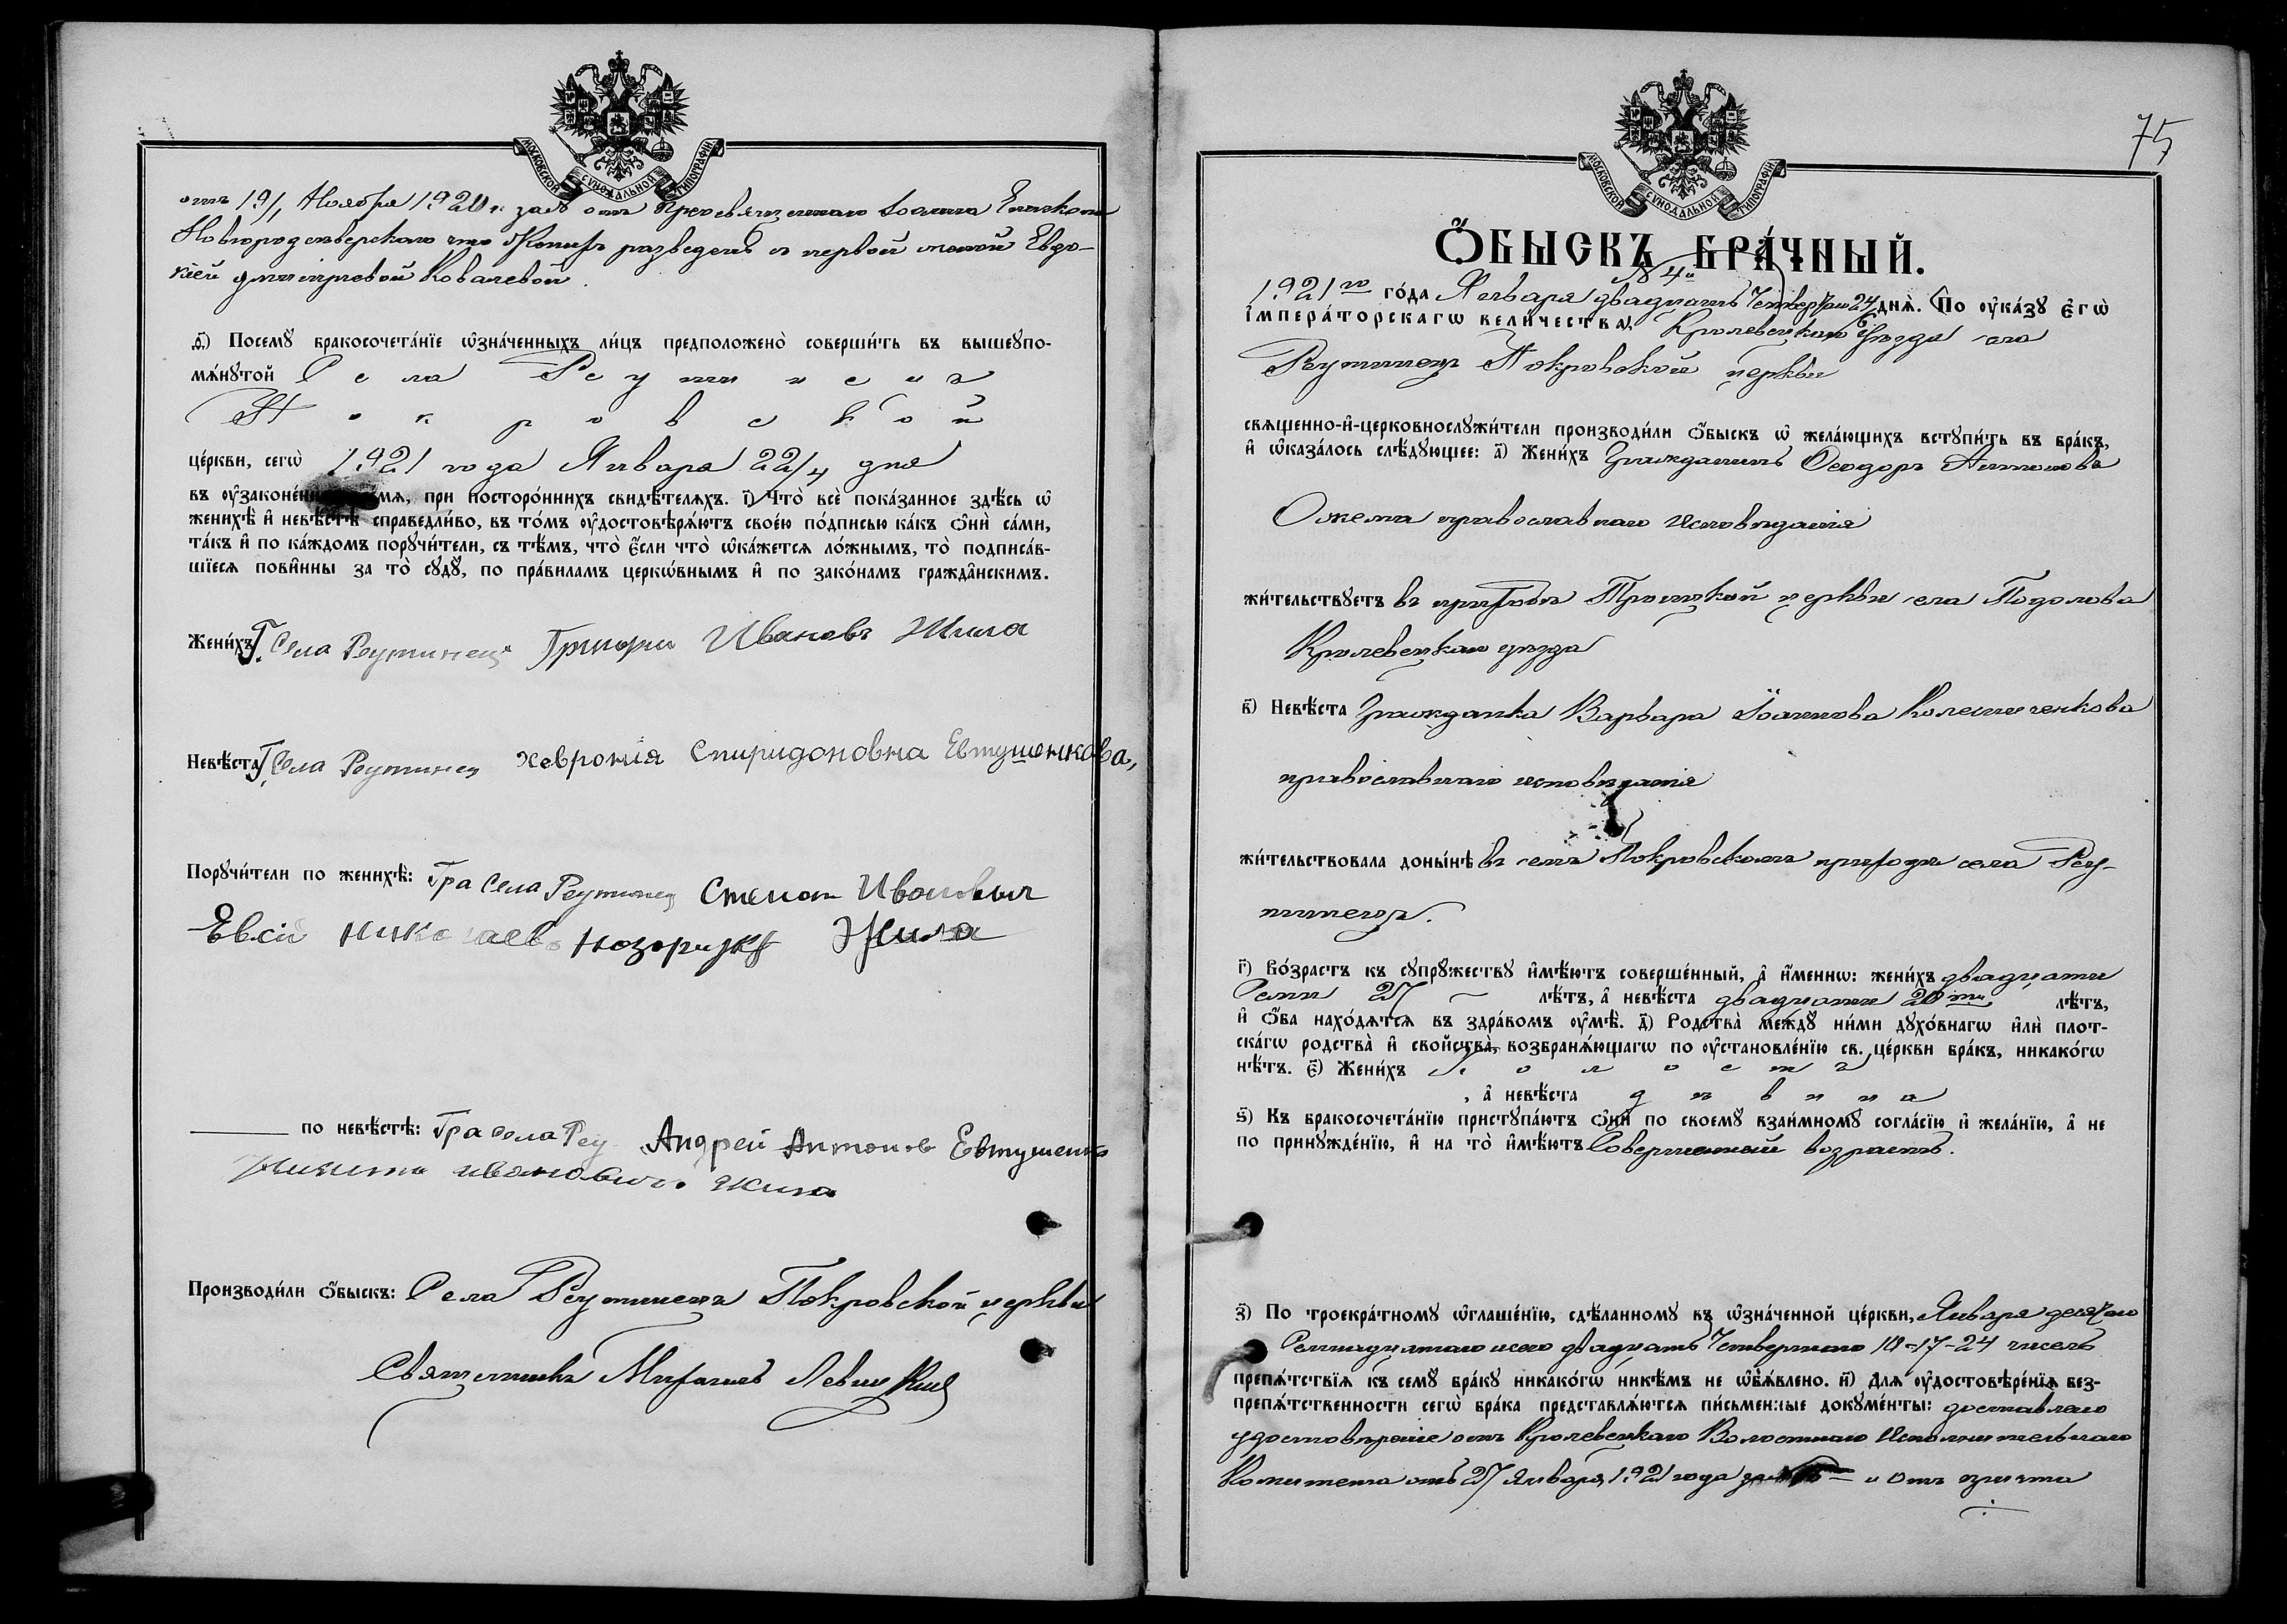 МОСКОВСКОЙ СѴНОДАЛЬНОЙ ТИПОГРАФІИ
отъ 19/, Ноября 1920 г. за № отъ Преосвященнаго Іоанна Епископа
Новгородсѣверскаго что Жених разведенъ с первой женой Евдо-
кіей Дмитріевой Ковалевой.
д҃) Посемꙋ̀ бракосочета́нїе ѡ҆зна́ченныхъ ли́цъ предположено̀ соверши́ть въ вышеꙋпо-
мѧ́нꙋтой Села Реутинецъ
Покровской
це́ркви, сегѡ̀ 1921 года Января 22/4 дня
въ ᲂу҆законе́нное вре́мѧ, при посторо́ннихъ свидѣ́телѧхъ. і҃) Что̀ всѐ пока́занное здѣ́сь ѡ҆
женихѣ̀ и҆ невѣ́стѣ справедли́во, въ то́мъ ᲂу҆достовѣрѧ́ютъ свое́ю по́дписью ка́къ ѻ҆нѝ са́ми,
та́къ и҆ по ка́ждомъ порꙋчи́тели, съ тѣ́мъ, что̀ є҆́сли что̀ ѡ҆ка́жетсѧ ло́жнымъ, то̀ подписа́в-
шїесѧ пови́нны за то̀ сꙋдꙋ̀, по пра́виламъ церко́внымъ и҆ по зако́намъ гражда́нскимъ.
Жени́хъ Г. Села Реутинецъ Григори Ивановъ Жила
Невѣ́ста Г. Села Реутинец Хеврония Спиридоновна Евтушенкова,
Порꙋчи́тели по женихѣ̀: Гра Села Реутинец Степан Иванович
Евсій Николаевъ Жила
по невѣ́стѣ: Гра села Реу. Андрей Антонов Евтушенко
Никита иванович Жила
Производи́ли ѻ҆́быскъ: Села Реутинецъ Покровской церкви
Священникъ Михаилъ Левицкій
75
МОСКОВСКОЙ СѴНОДАЛЬНОЙ ТИПОГРАФІИ
Ѻ҆́БЫСКЪ БРА́ЧНЫЙ.
№ 4й
1921го го́да Января двадцать Четвертаго 24 днѧ̀. По ᲂу҆ка́зꙋ є҆гѡ̀
і҆мпера́торскагѡ вели́чества, Кролевецкаго уѣзда села
Реутинецъ Покровской церкви
свѧщенно-и҆-церковнослꙋжи́тели производи́ли ѻ҆́быскъ ѡ҆ жела́ющихъ встꙋпи́ть въ бра́къ,
и҆ ѡ҆каза́лось слѣ́дꙋющее: а҃) Жени́хъ Гражданинъ Ѳеодоръ Антоновъ
Ожема православнаго исповѣданія
жи́тельствꙋетъ въ приходѣ Троицкой церкви села Подолова
Кролевецкаго уѣзда
в҃) Невѣ́ста Гражданка Варвара Іоаннова Колесниченкова
православнаго исповѣданія
жи́тельствовала доны́нѣ въ семъ Покровскомъ приходѣ села Реу-
тинецъ.
г҃) Во́зрастъ къ сꙋпрꙋ́жествꙋ и҆мѣ́ютъ соверше́нный, а҆ и҆́меннѡ: жени́хъ двадцати
Семи 27 – лѣ́тъ, а҆ невѣ́ста двадцати 20ти лѣ́тъ,
и҆ ѻ҆́ба нахо́дѧтсѧ въ здра́вомъ ᲂу҆мѣ̀. д҃) Родства̀ междꙋ̀ ни́ми дꙋхо́внагѡ и҆лѝ плот-
ска́гѡ родства̀ и҆ свойства̀, возбранѧ́ющагѡ по ᲂу҆становле́нїю св. це́ркви бра́къ, никако́гѡ
нѣ́тъ. є҃) Жени́хъ холостъ
, а҆ невѣ́ста дѣвица
ѕ҃) Къ бракосочета́нїю пристꙋпа́ютъ ѻ҆нѝ по своемꙋ̀ взаи́мномꙋ согла́сїю и҆ жела́нїю, а҆ не
по принꙋжде́нїю, и҆ на то̀ и҆мѣ́ютъ Совершенный возрастъ.
з҃) По троекра́тномꙋ ѡ҆глаше́нїю, сдѣ́ланномꙋ въ ѡ҆зна́ченной це́ркви, Января десятаго
Семнадцатаго и сего двадцать Четвертаго 10-17-24 чиселъ
препѧ́тствїѧ къ семꙋ̀ бра́кꙋ никако́гѡ никѣ́мъ не ѡ҆б̾ѧ́влено. и҃) Длѧ̀ ᲂу҆достовѣре́нїѧ без-
препѧ́тственности сегѡ̀ бра́ка представлѧ́ютсѧ пи́сьменные докꙋме́нты: доставлено
удостовѣреніе отъ Кролевецкаго Волостного Исполнительнаго
Комитета отъ 27 января 1921 года за и отъ причта